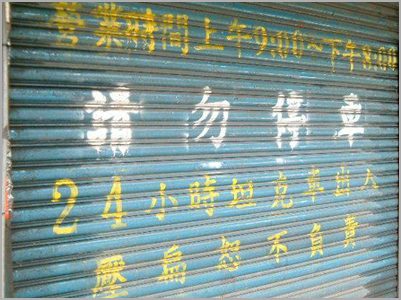 營業時間上午9:00~下午8:00
請勿停車
24小時坦克車出入
壓扁恕不負責